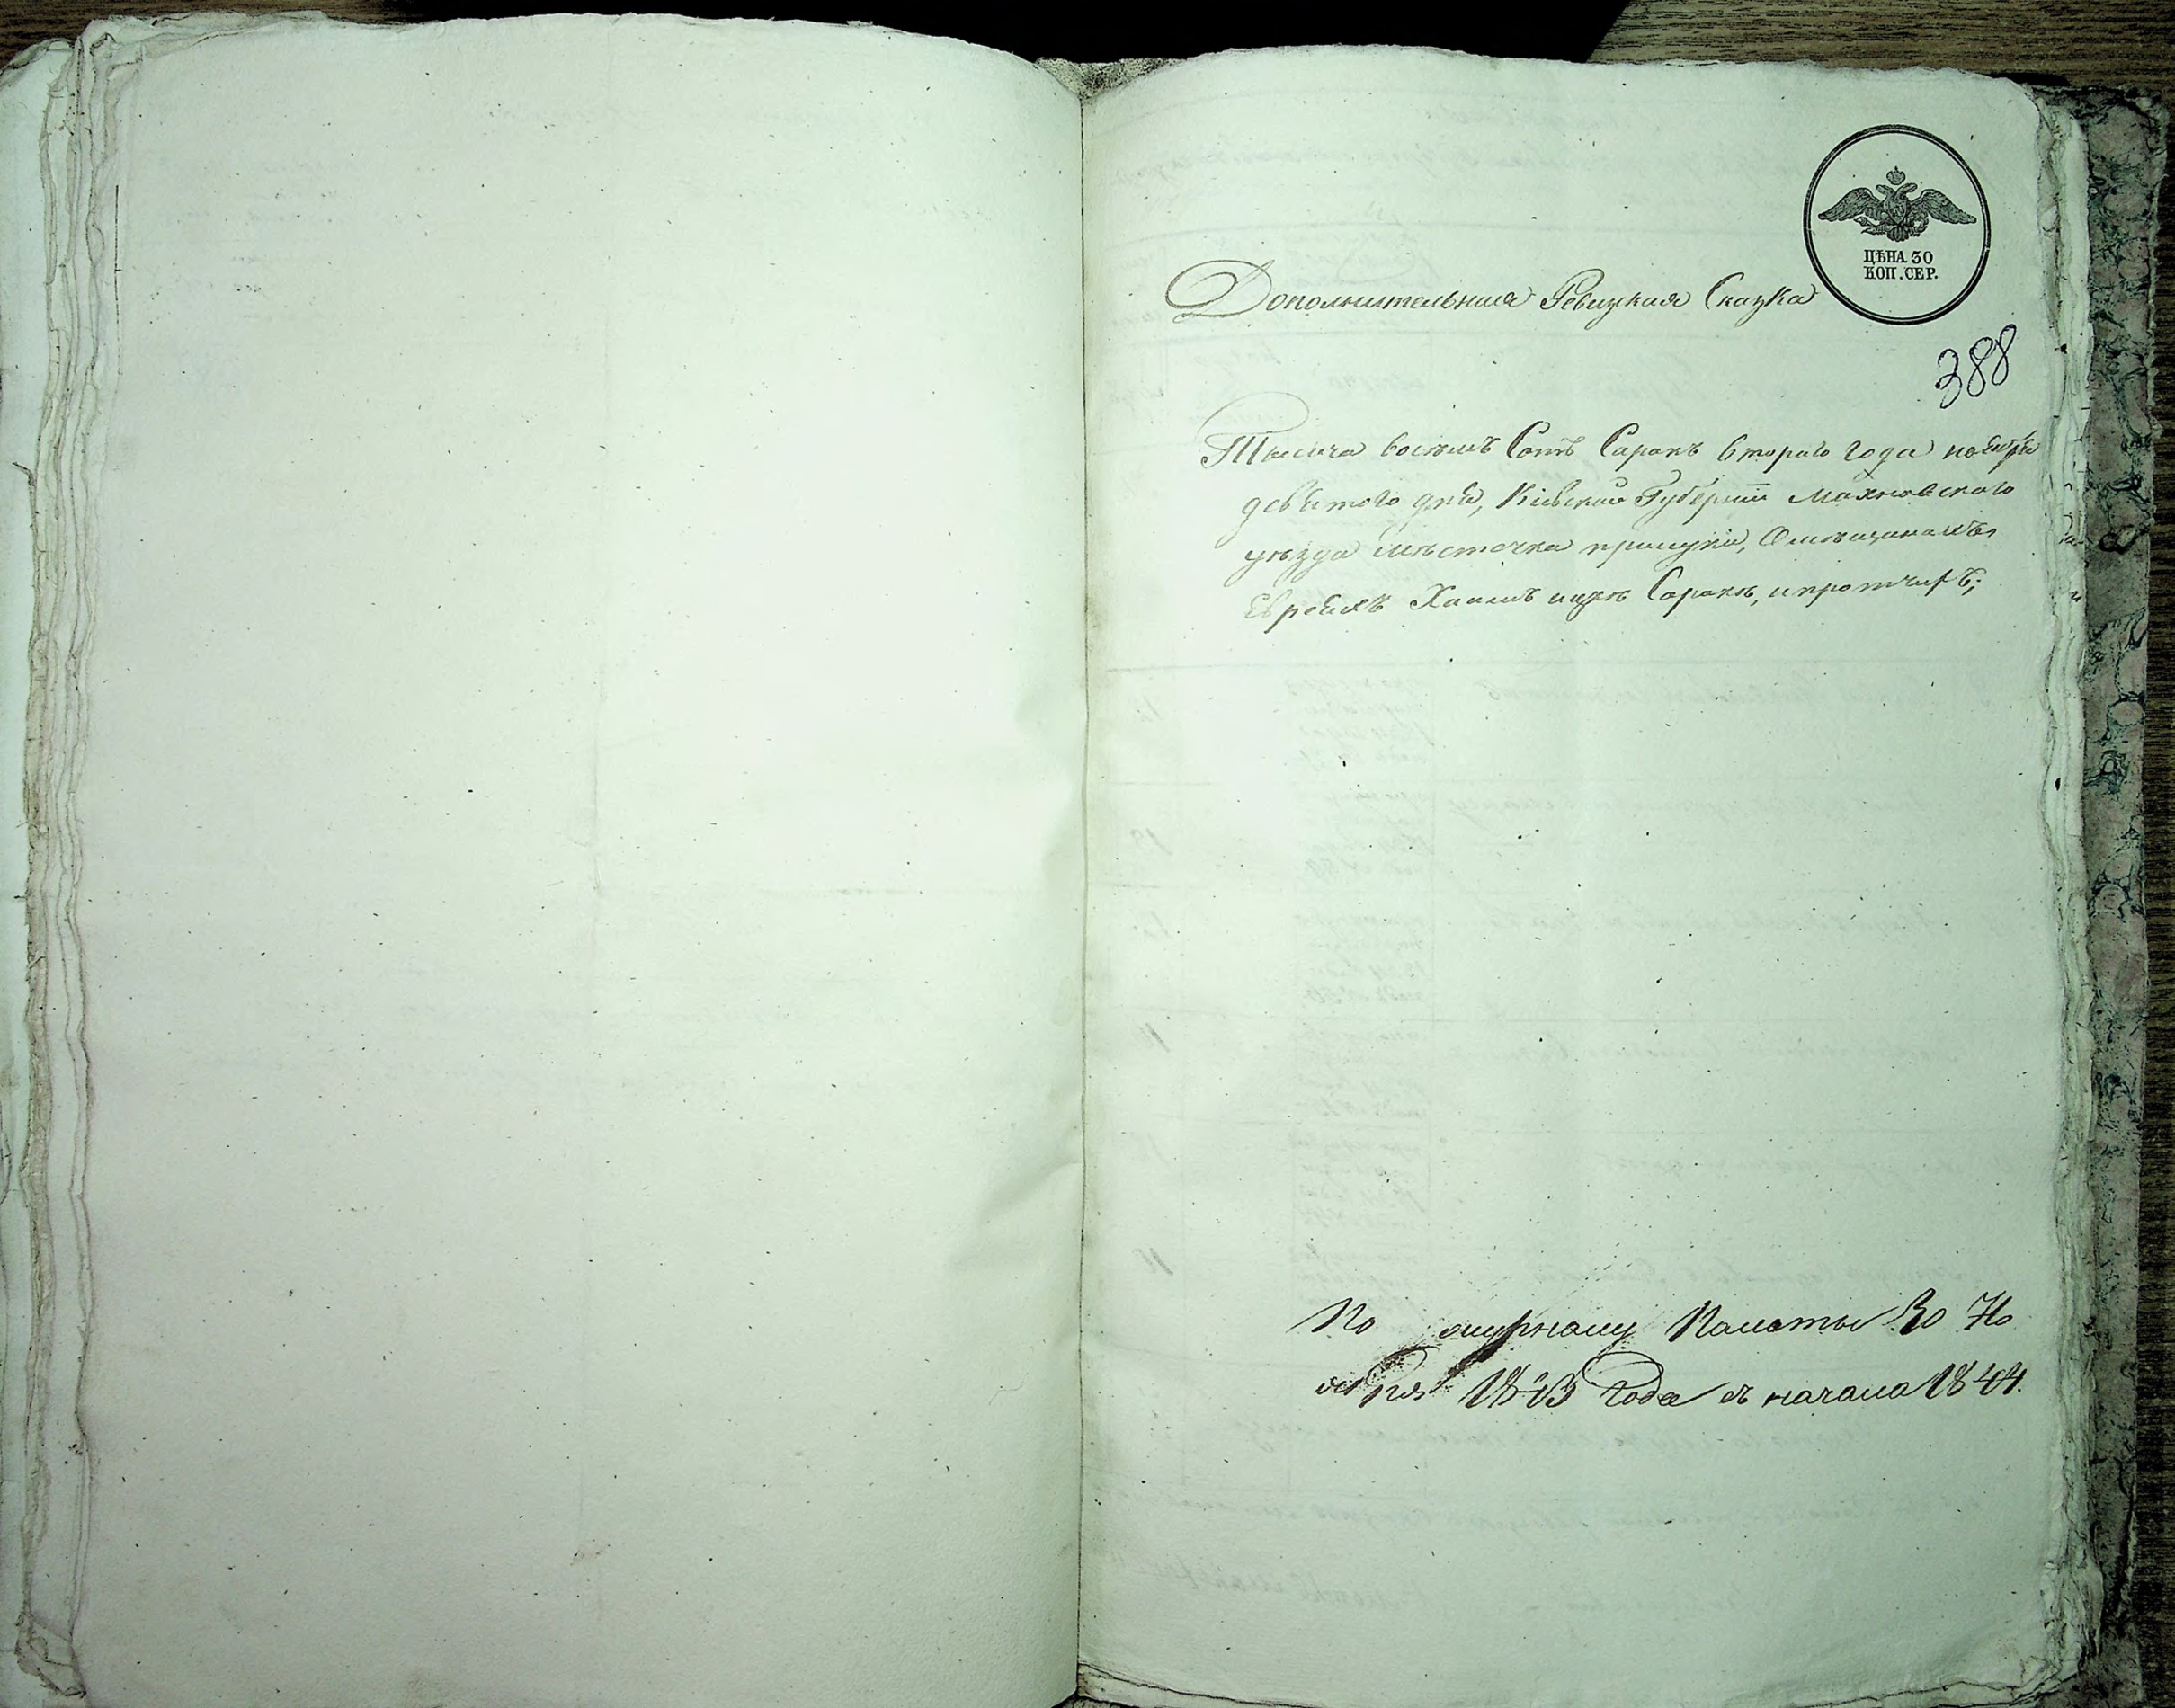 ЦѢНА 30
КОП. СЕР.
Дополнительная Ревизкая Сказка
388
Тысяча восемъ Сотъ Сорокъ втораго года ноября
девятого дня, Кіевской Губерніи Махновскаго
уѣзда мѣстечка прилуки, О мѣщанахъ
Евреяхъ Хаимѣ Сорокѣ, и протчихъ;
По Палаты 30
1843 Года съ начала 1844.